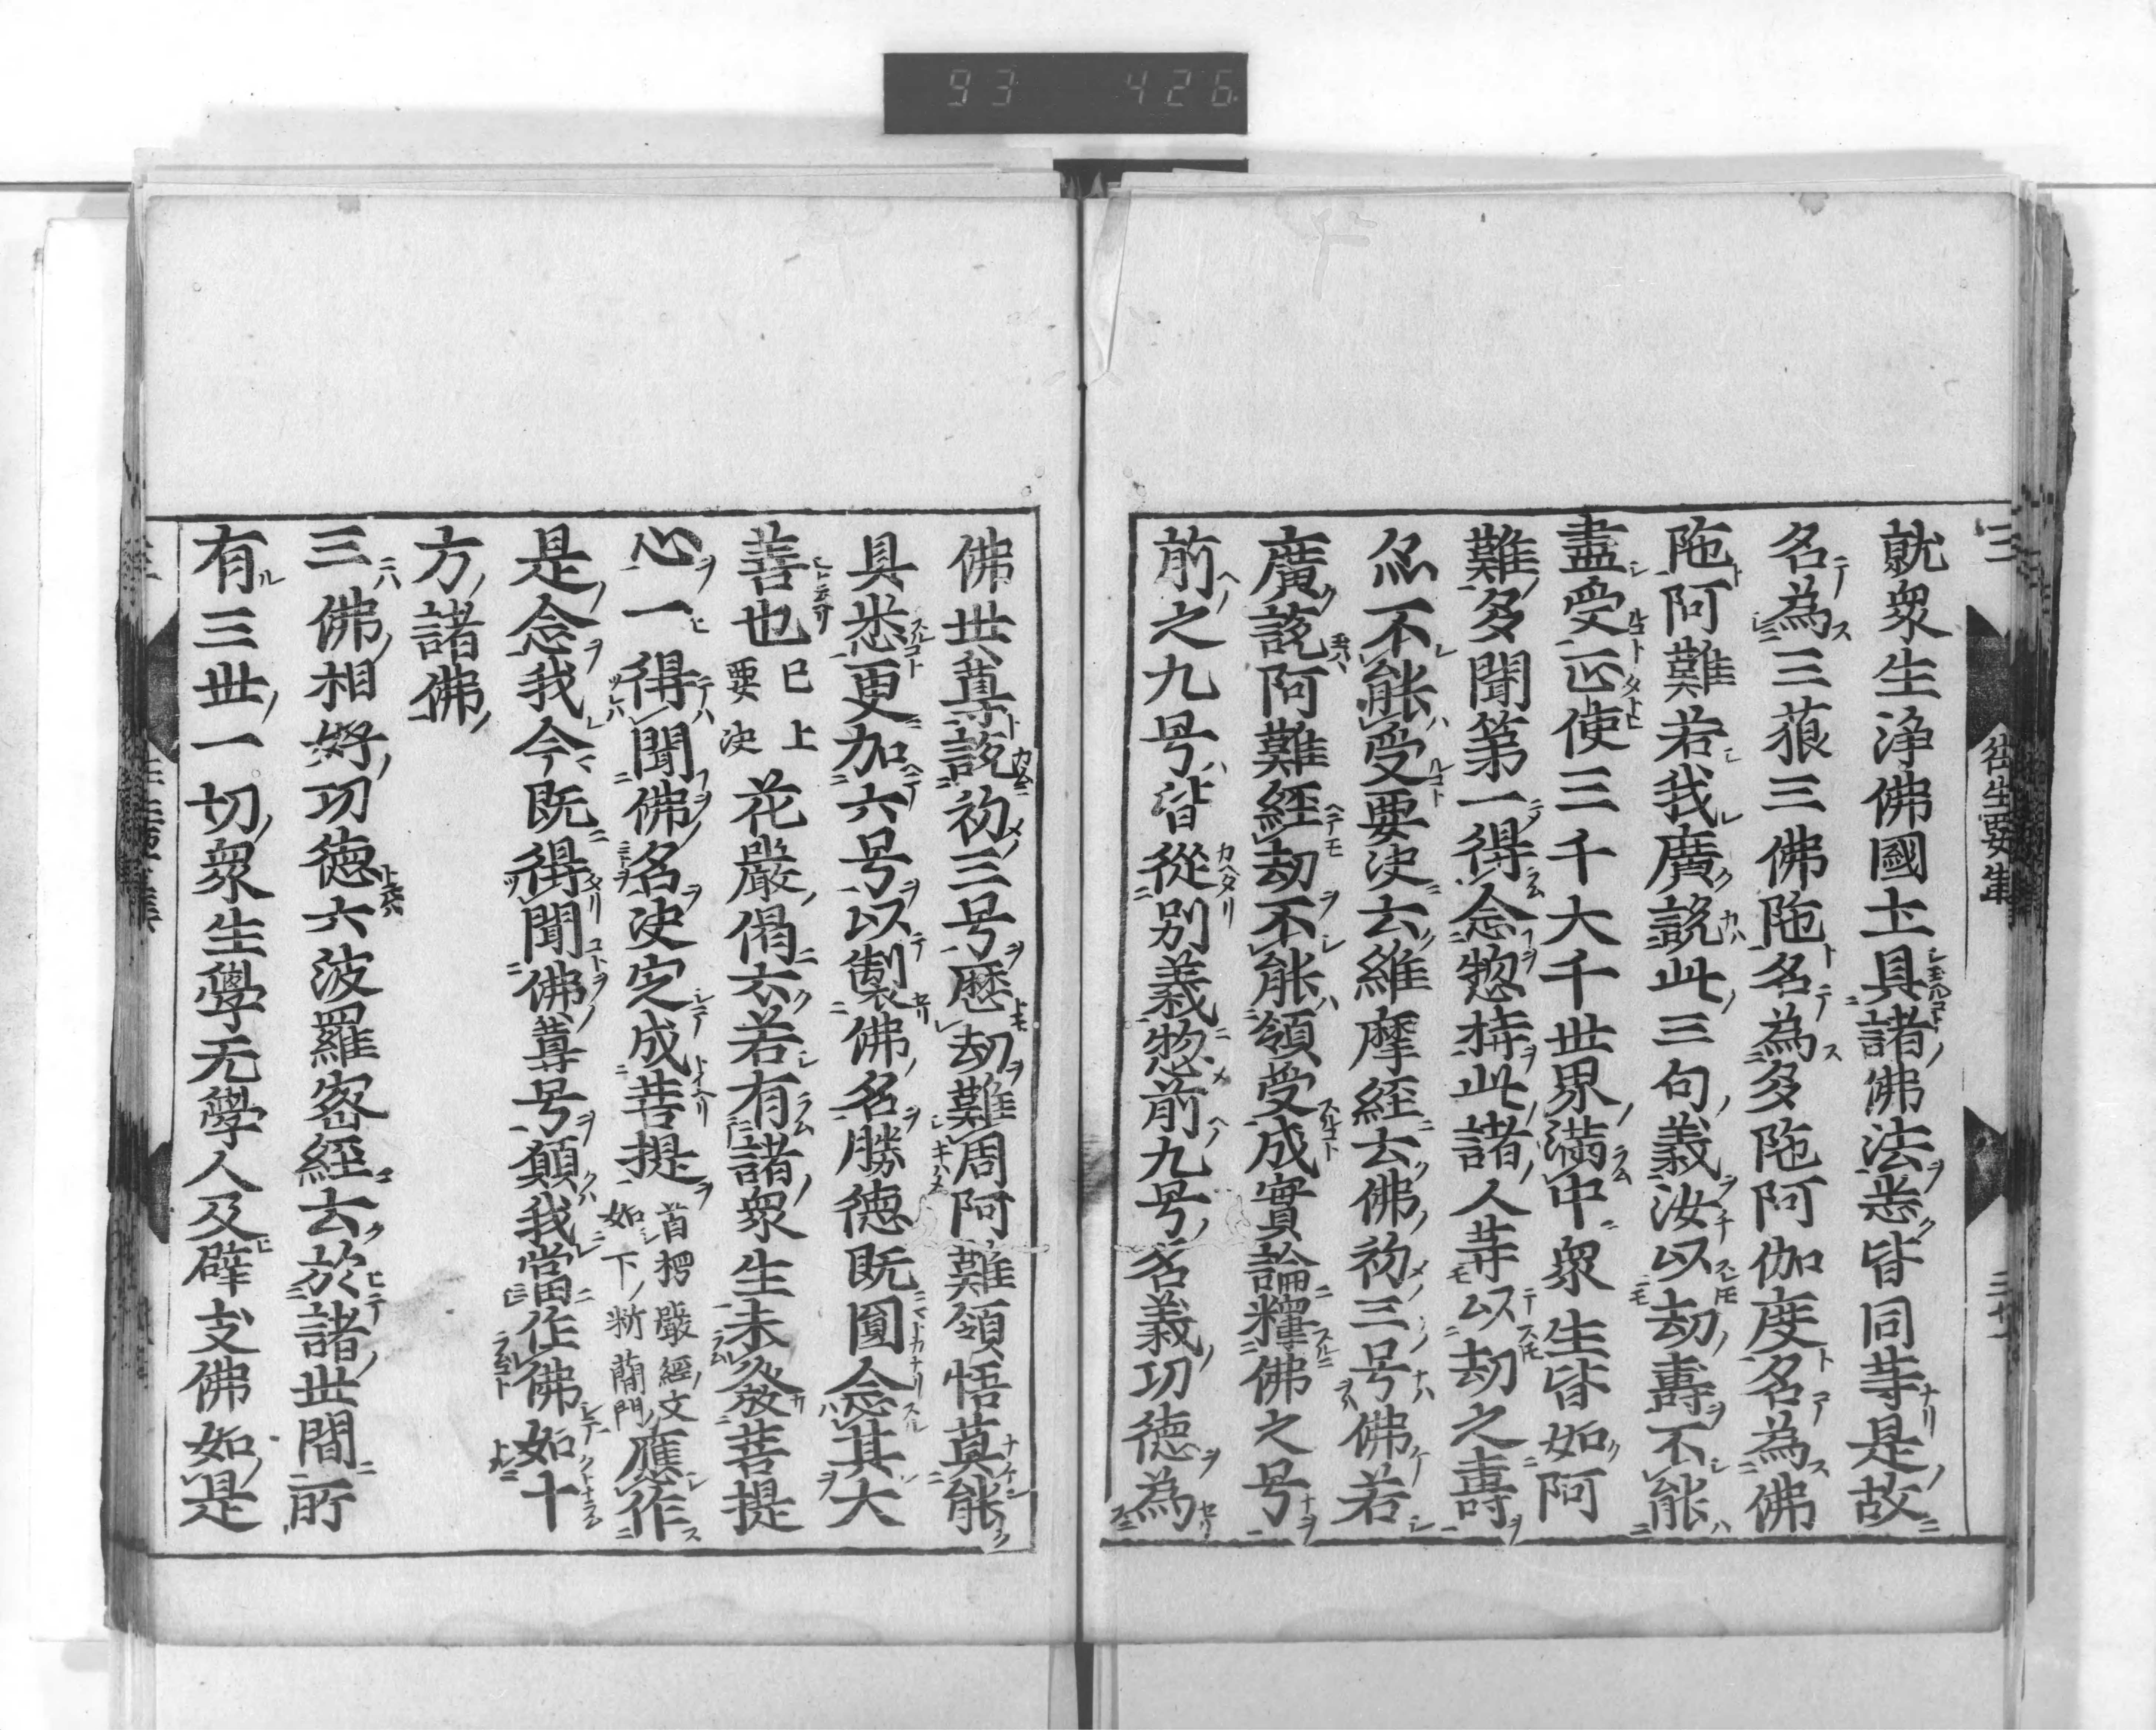 93 426
往生要集
就衆生淨佛國土具諸佛法悉皆同等是故
名為三藐三佛陁名為多陁阿伽度名為佛
陁阿難若我廣說此三句義汝以劫壽不能
盡受正使三千大千世界滿中衆生皆如阿
難多聞第一得念惣持此諸人等以劫之壽
亦不能受要决云維摩經云佛初三号佛若
廣說阿難經劫不能領受成實論釋佛之号
前之九号皆從別義惣前九号名義功德為
佛世尊說初三号歷劫難周阿難領悟莫能
具悉更加六号以製佛名勝德既圓念其大
善也已上要决花嚴偈云若有諸衆生未發菩提
心一得聞佛名决定成菩提首楞嚴經文如下新蕳門應作
是念我今既得聞佛尊号願我當作佛如十
方諸佛
三佛相好功德六波羅密經云於諸世間所
有三世一切衆生學无學人及辟支佛如是